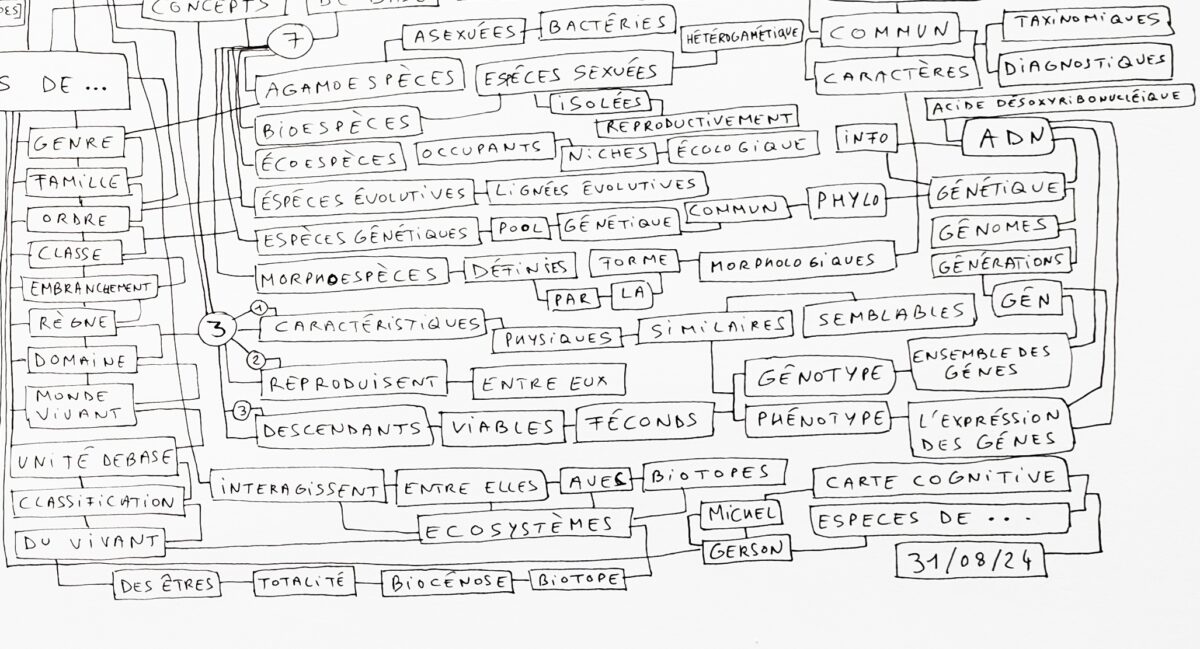 CONCEPTS
7
ASEXUÉES
BACTÉRIES
HÉTÉROGAMÉTIQUE
COMMUN
TAXINOMIQUES
S DE ...
AGAMOESPÈCES
ESPÉCES SEXUÉES
CARACTÈRES
DIAGNOSTIQUES
ISOLÉES
ACIDE DÉSOXYRIBONUCLÉIQUE
GENRE
BIOESPÈCES
REPRODUCTIVEMENT
INFO
ADN
FAMILLE
ÉCOESPÈCES
OCCUPANTS
NICHES
ÉCOLOGIQUE
ORDRE
ÉSPÉCES ÉVOLUTIVES
LIGNÉES ÉVOLUTIVES
GÉNÉTIQUE
CLASSE
ESPÈCES GÉNÉTIQUES
POOL
GÉNÉTIQUE
COMMUN
PHYLO
GÉNOMES
EMBRANCHEMENT
MORPHOESPÈCES
DÉFINIES
FORME
MORPHOLOGIQUES
GÉNÉRATIONS
PAR
LA
GÉN
RÈGNE
3
1
CARACTÉRISTIQUES
PHYSIQUES
SIMILAIRES
SEMBLABLES
DOMAINE
2
REPRODUISENT
ENTRE EUX
GÉNOTYPE
ENSEMBLE DES
GÉNES
MONDE
VIVANT
3
DESCENDANTS
VIABLES
FÉCONDS
PHÉNOTYPE
L'EXPRÉSSION
DES GÉNES
UNITÉ DEBASE
INTERAGISSENT
ENTRE ELLES
AVES
BIOTOPES
CARTE COGNITIVE
CLASSIFICATION
ECOSYSTÈMES
MICHEL
ESPECES DE ...
DU VIVANT
GERSON
31/08/24
DES ÊTRES
TOTALITÉ
BIOCÉNOSE
BIOTOPE